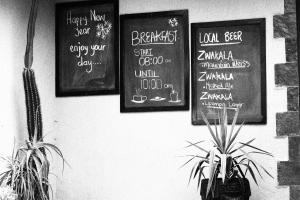 Happy New
Year
enjoy your
day....
BREAKFAST
START
08:00
UNTIL
LOCAL BEER
ZWAKALA
ZWAKALA
ZWAKALA
Lager